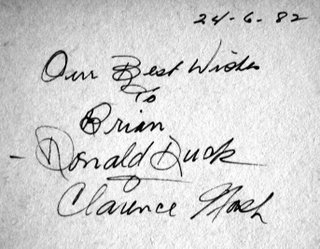 24-6-82
Our Best Wishes
To
Brian
Donald Duck
&
Clarence Nash